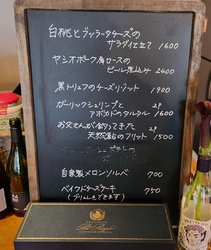 白桃とブッラータチーズの
サラダ仕立て 1600
ヤシオポーク肩ロースの
ビール煮込み 2400
黒トリュフのチーズリゾット 1900
ガーリックシュリンプと 2P
アボカドのタルタル 1600
お父さんが釣ってきた 2P
天然鮎のフリット 1500
自家製メロンソルベ 700
ベイクドチーズケーキ 750
(ブリュレもできます)